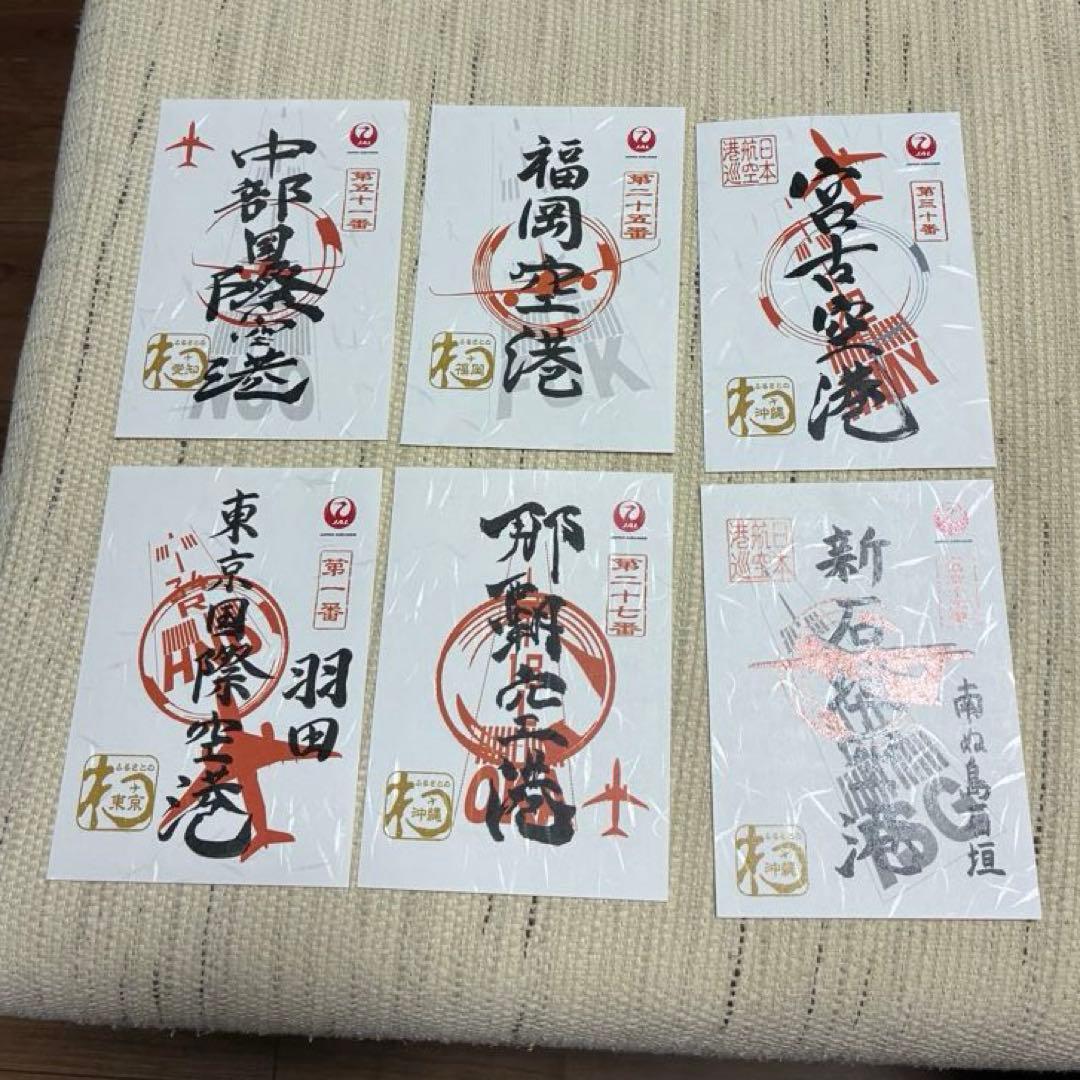 中部国際空港
JAL
JAPAN AIRLINES
第五十一番
ふるさとの
愛知
NGO
福岡空港
JAL
JAPAN AIRLINES
第二十五番
ふるさとの
福岡
FUK
日本
航空
港巡
宮古空港
JAL
JAPAN AIRLINES
第三十番
ふるさとの
沖縄
MMY
東京国際空港
羽田
JAL
JAPAN AIRLINES
第一番
ふるさとの
東京
那覇空港
JAL
JAPAN AIRLINES
第二十七番
ふるさとの
沖縄
日本
航空
港巡
新石垣空港
南ぬ島石垣
ふるさとの
沖縄